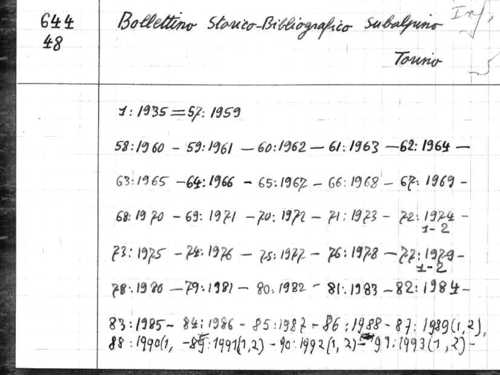 644
48
Bollettino Storico-Bibliografico Subalpino
Torino
1:1935=57:1959
58:1960 - 59:1961 - 60:1962 - 61:1963 - 62:1964 -
63:1965 - 64:1966 - 65:1967 - 66:1968 - 67:1969 -
68:1970 - 69:1971 - 70:1972 - 71:1973 - 72:1974 -
1-2
73:1975 - 74:1976 - 75:1977 - 76:1978 - 77:1979 -
1-2
78:1980 - 79:1981 - 80:1982 - 81:1983 - 82:1984 -
83:1985 - 84:1986 - 85:1987 - 86:1988 - 87:1989(1,2),
88:1990(1, - 89:1991(1,2) - 90:1992(1,2) - 91:1993(1,2) -